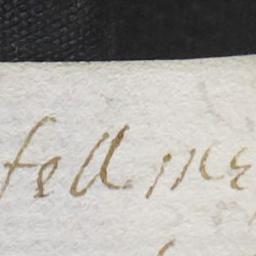 fell me